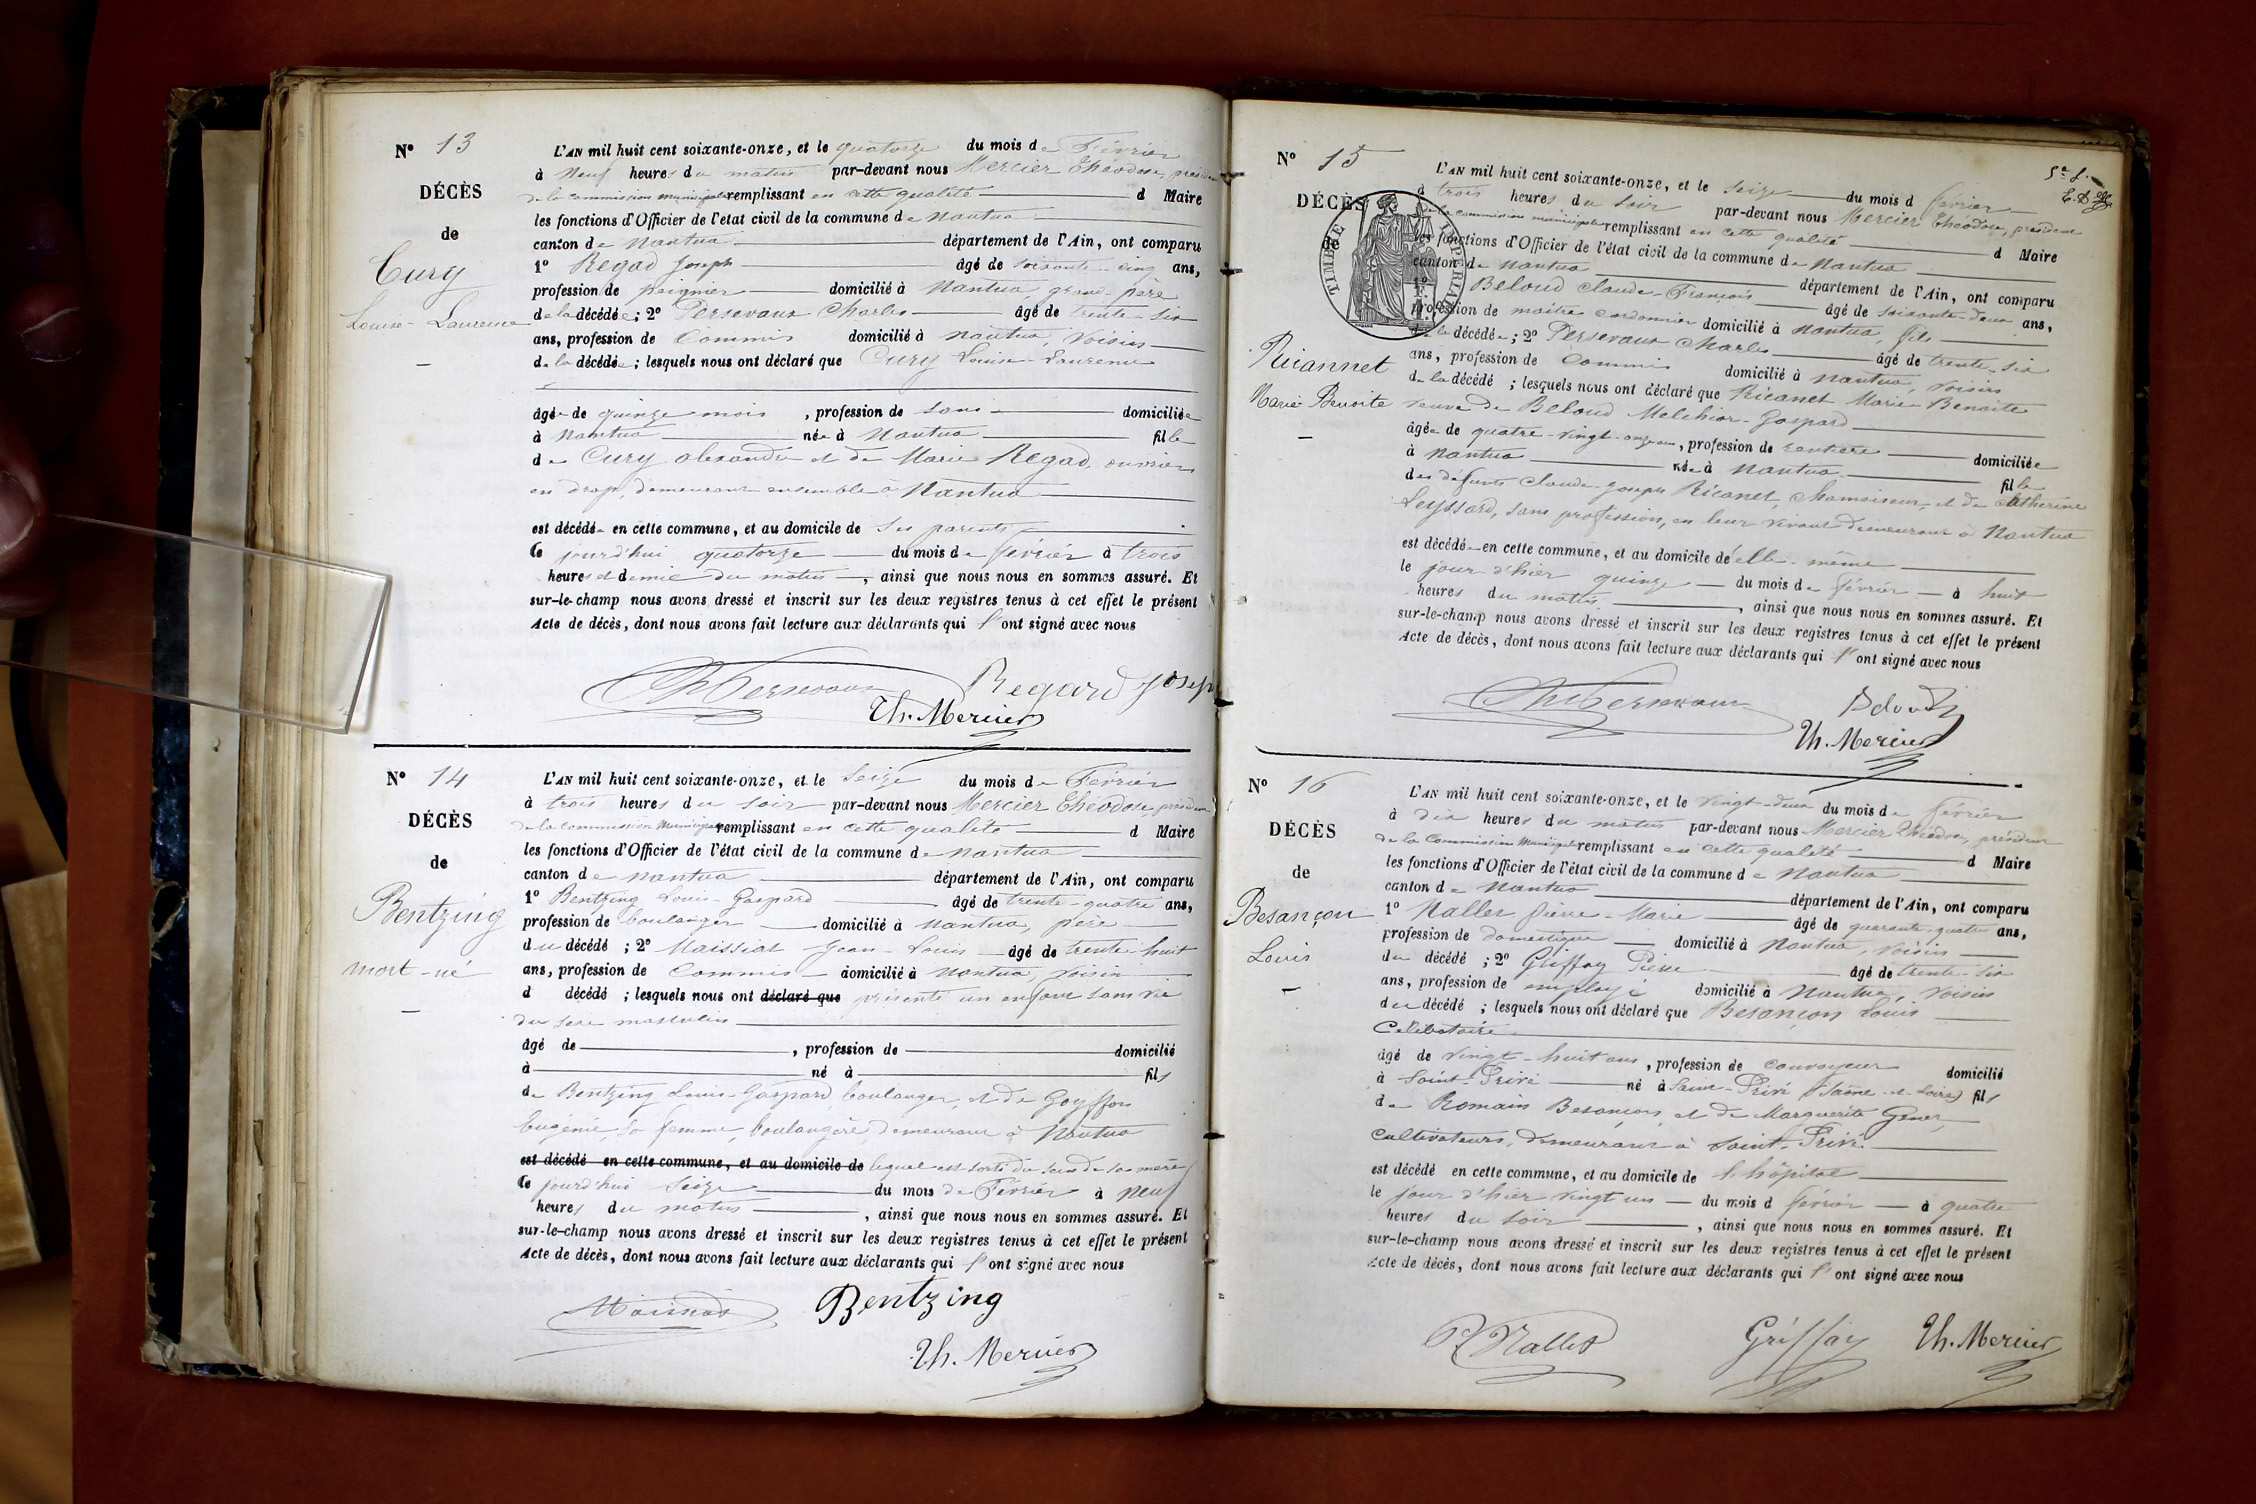 N° 13
DÉCÈS
de
Cury
Louise-Laurence
L'AN mil huit cent soixante-onze, et le quatorze du mois de Février
à neuf heures du matin par-devant nous Mercier Théodore, président
de la commission municipale remplissant en cette qualité d Maire
les fonctions d'Officier de l'état civil de la commune de Nantua
canton de Nantua département de l'Ain, ont comparu
1° Regad Joseph âgé de soixante-cinq ans,
profession de peignier domicilié à Nantua, grand-père
de la décédée; 2° Persevaux Charles âgé de trente-six
ans, profession de Commis domicilié à Nantua, voisin
de la décédée; lesquels nous ont déclaré que Cury Louise-Laurence
âgée de quinze mois, profession de sans domiciliée
à Nantua née à Nantua fille
de Cury Alexandre et de Marie Regad, ouvriers
en drap, demeurant ensemble à Nantua
est décédée en cette commune, et au domicile de ses parents
Ce jourd'hui quatorze du mois de février à trois
heures et demie du matin, ainsi que nous nous en sommes assuré. Et
sur-le-champ nous avons dressé et inscrit sur les deux registres tenus à cet effet le présent
Acte de décès, dont nous avons fait lecture aux déclarants qui l'ont signé avec nous
Ch Persevaux Regard Joseph
Th. Mercier
N° 14
DÉCÈS
de
Bentzing
mort-né
L'AN mil huit cent soixante-onze, et le seize du mois de Février
à trois heures du soir par-devant nous Mercier Théodore, président
de la commission municipale remplissant en cette qualité d Maire
les fonctions d'Officier de l'état civil de la commune de Nantua
canton de Nantua département de l'Ain, ont comparu
1° Bentzing Louis-Gaspard âgé de trente-quatre ans,
profession de boulanger domicilié à Nantua, père
du décédé; 2° Maissiat Jean-Louis âgé de trente-huit
ans, profession de Commis domicilié à Nantua, voisin
d décédé; lesquels nous ont déclaré que présenté un enfant sans vie
du sexe masculin
âgé de, profession de domicilié
à né à fils
de Bentzing Louis-Gaspard, boulanger, et de Goyffon
Eugénie, sa femme, boulangère, demeurant à Nantua
est décédé en cette commune, et au domicile de lequel est sorti du sein de sa mère
Ce jourd'hui seize du mois de Février à neuf
heures du matin, ainsi que nous nous en sommes assuré. Et
sur-le-champ nous avons dressé et inscrit sur les deux registres tenus à cet effet le présent
Acte de décès, dont nous avons fait lecture aux déclarants qui l'ont signé avec nous
Bentzing
Th. Mercier
N° 15
DÉCÈS
de
TIMBRE IMPERIAL
Ricannet
Marie Benoite
L'AN mil huit cent soixante-onze, et le seize du mois d février
à trois heures du soir par-devant nous Mercier Théodore, président
de la commission municipale remplissant en cette qualité d Maire
les fonctions d'Officier de l'état civil de la commune de Nantua
canton de Nantua département de l'Ain, ont comparu
1° Beloud Claude-François âgé de soixante-deux ans,
profession de maître cordonnier domicilié à Nantua, fils
de la décédée; 2° Persevaux Charles âgé de trente-six
ans, profession de Commis domicilié à Nantua, voisin
de la décédé; lesquels nous ont déclaré que Ricanet Marie Benoite
veuve de Beloud Melchior-Gaspard
âgée de quatre-vingt-onze ans, profession de rentière domiciliée
à Nantua née à Nantua fille
des défunts Claude-Joseph Ricanet, chamoiseur, et de Catherine
Leyssard, sans profession, en leur vivant demeurant à Nantua
est décédée en cette commune, et au domicile d'elle-même
le jour d'hier quinze du mois de février à huit
heures du matin, ainsi que nous nous en sommes assuré. Et
sur-le-champ nous avons dressé et inscrit sur les deux registres tenus à cet effet le présent
Acte de décès, dont nous avons fait lecture aux déclarants qui l'ont signé avec nous
Ch Persevaux Beloud
Th. Mercier
N° 16
DÉCÈS
de
Besançon
Louis
L'AN mil huit cent soixante-onze, et le vingt-deux du mois de février
à dix heures du matin par-devant nous Mercier Théodore, président
de la Commission Municipale remplissant en cette qualité d Maire
les fonctions d'Officier de l'état civil de la commune de Nantua
canton de Nantua département de l'Ain, ont comparu
1° Nallet Pierre-Marie âgé de quarante-quatre ans,
profession de domestique domicilié à Nantua, voisin
du décédé; 2° Griffay Pierre âgé de trente-six
ans, profession de employé domicilié à Nantua, voisin
du décédé; lesquels nous ont déclaré que Besançon Louis
Célibataire
âgé de vingt-huit ans, profession de convoyeur domicilié
à Saint-Privé né à Saint-Privé (Saône-et-Loire) fils
de Romain Besançon, et de Marguerite
cultivateurs, demeurant à Saint-Privé
est décédé en cette commune, et au domicile de l'hôpital
le jour d'hier vingt un du mois d février à quatre
heures du soir, ainsi que nous nous en sommes assuré. Et
sur-le-champ nous avons dressé et inscrit sur les deux registres tenus à cet effet le présent
Acte de décès, dont nous avons fait lecture aux déclarants qui l'ont signé avec nous
P Nallet Griffay Th. Mercier